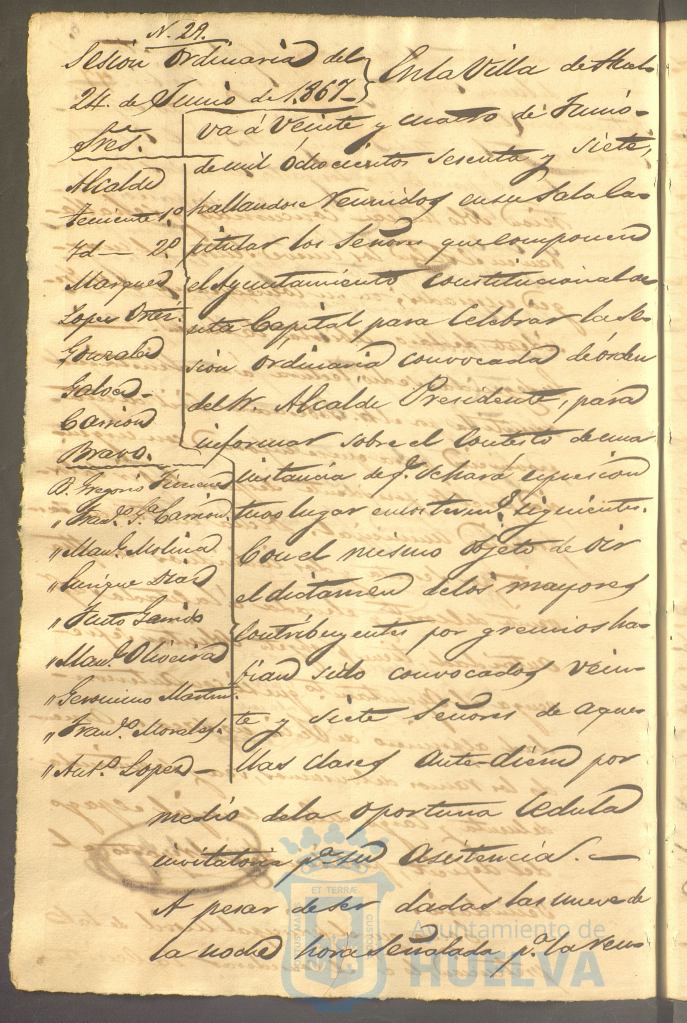 N. 29.
Sesion Ordinaria del
24. de Junio de 1.867.
Sres.
Alcalde
Teniente 1.º
Yd — 2.º
Marquez
Lopez Ortiz.
Gonzalez
Galvez -
Carrion
Bravo.
D. Gregorio
" Fran.co G.ª Carrion.
" Man.l Molina
" Enrique Diaz
" Justo Garrido
" Man.l Oliveira
" Geronimo Martin.
" Fran.co Morales.
" Ant.º Lopez —
En la Villa de Huel-
va á Veinte y cuatro de Junio
de mil ochocientos sesenta y siete,
hallandose Reunidos en su Sala Ca-
pitular los Señores que componen
el Ayuntamiento constitucional de
esta Capital para Celebrar la se-
sion ordinaria convocada de órden
del Sr. Alcalde Presidente, para
informar sobre el Contesto de una
instancia de q.e se hará espresion
tuvo lugar en los term.s siguientes.
Con el mismo objeto de oir
el dictamen de los mayores
Contribuyentes por gremios ha-
bian sido convocados vein-
te y siete Señores de aque-
llas clases ante-diem por
medio de la oportuna Cedula
invitatoria p.ª su Asistencia. —
A pesar de ser dadas las nueve de
la noche hora Señalada p.ª la Reu-
ET TERRÆ
PORTUS MARIS
CUSTODIA
Ayuntamiento de
HUELVA